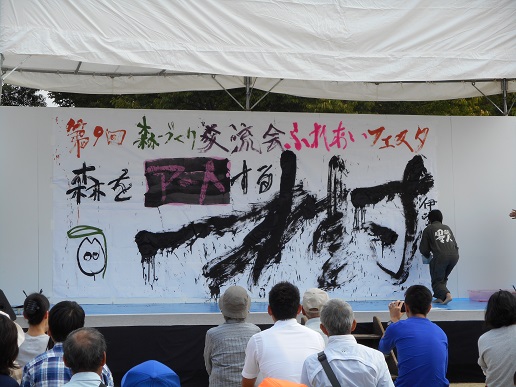 第9回 森づくり交流会ふれあいフェスタ
森をアートする
樹
伊